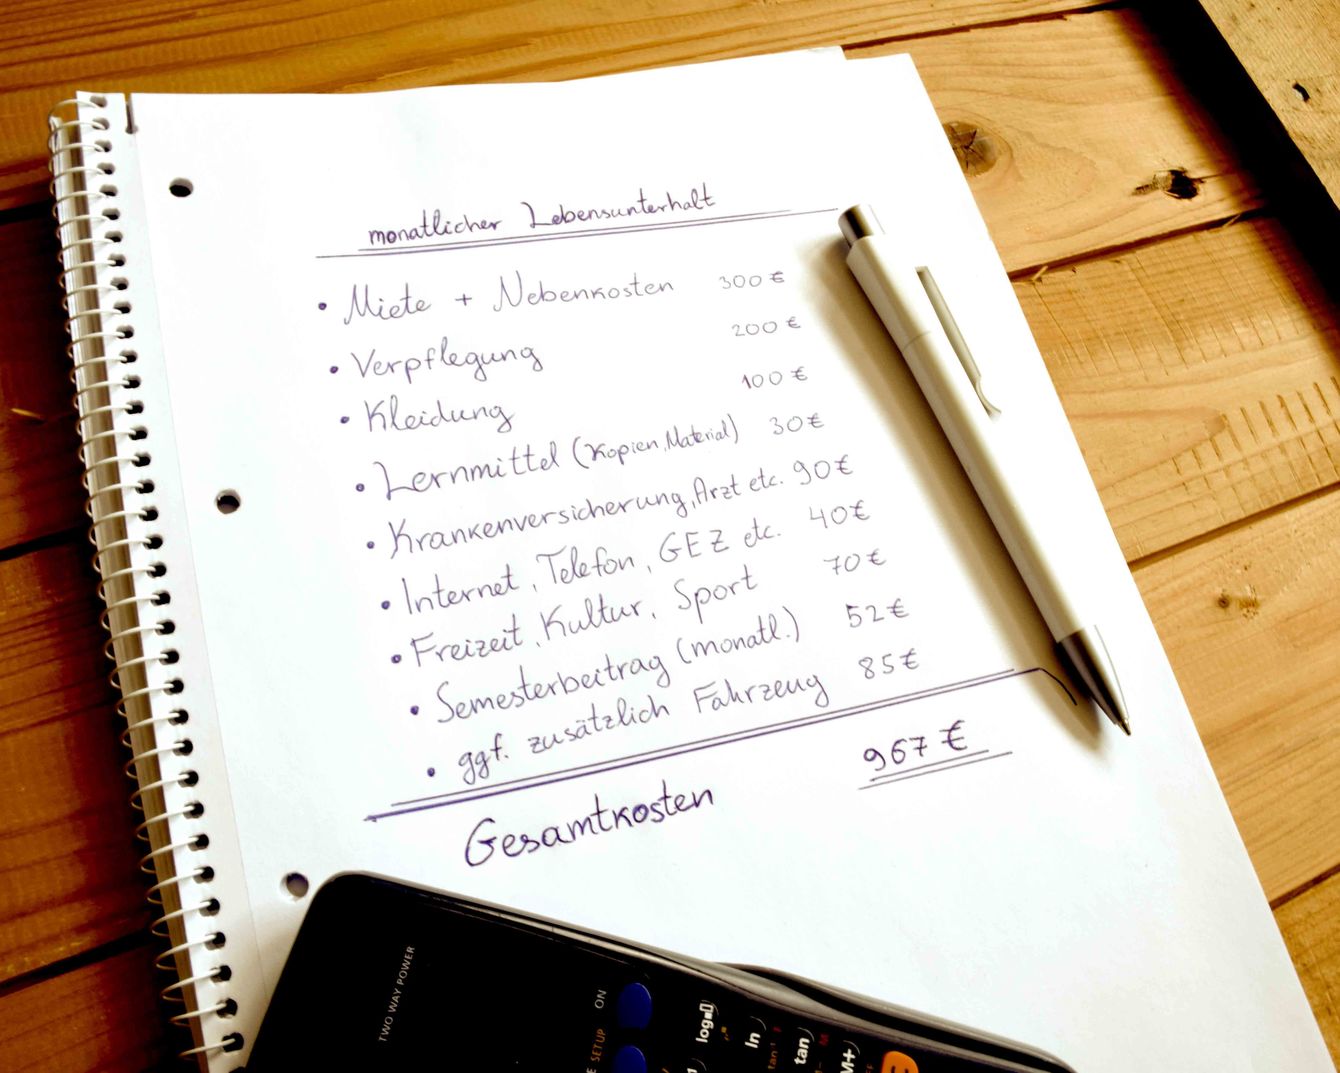 monatlicher Lebensunterhalt
• Miete + Nebenkosten 300 €
• Verpflegung 200 €
• Kleidung 100 €
• Lernmittel (Kopien, Material) 30 €
• Krankenversicherung, Arzt etc. 90 €
• Internet, Telefon, GEZ etc. 40 €
• Freizeit, Kultur, Sport 70 €
• Semesterbeitrag (monatl.) 52 €
• ggf. zusätzlich Fahrzeug 85 €
Gesamtkosten 967 €
TWO WAY POWER
ON
SETUP
log
ln
tan
tan⁻¹
M+